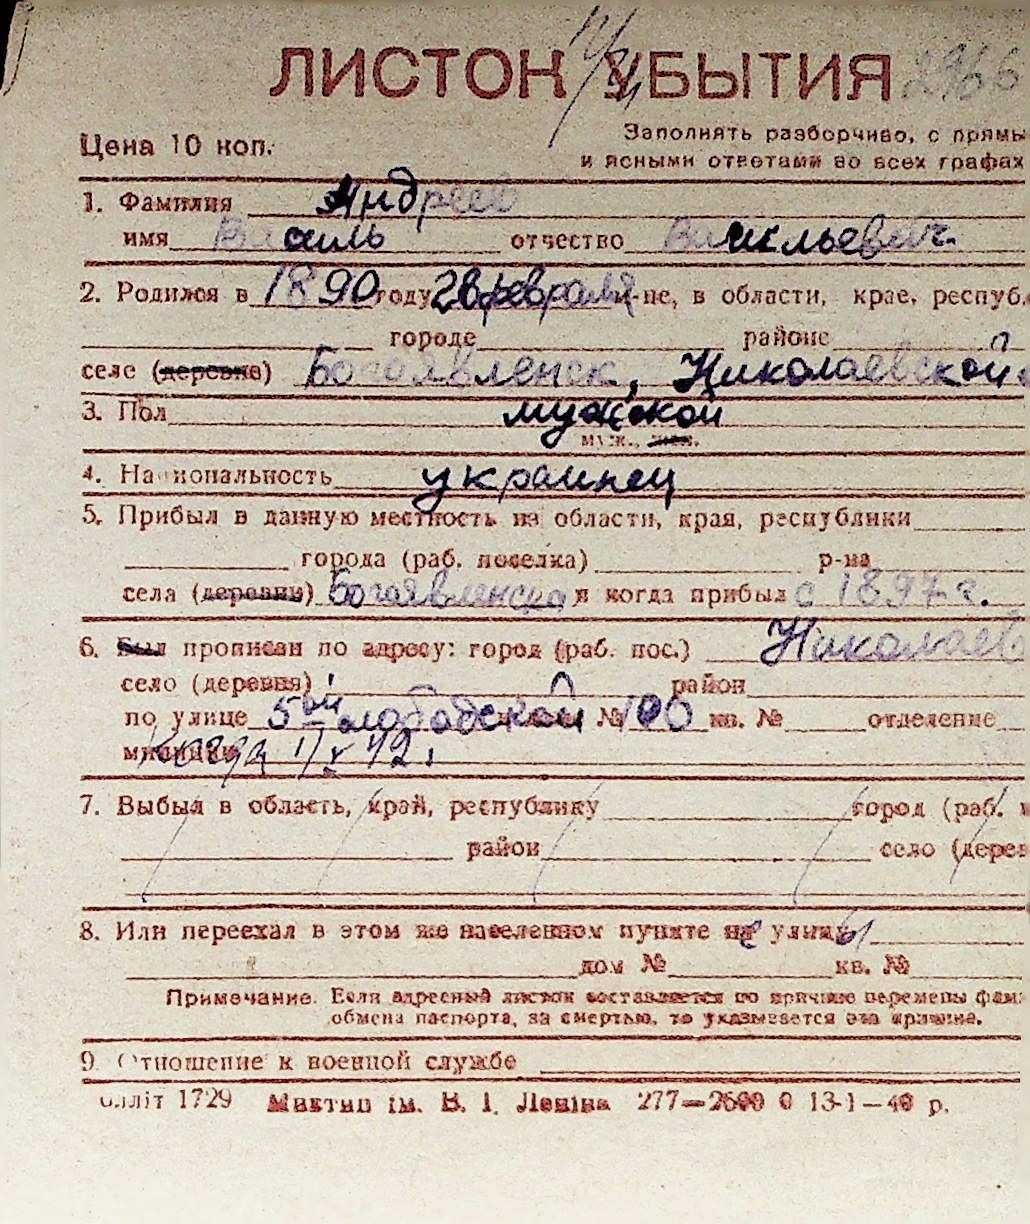 ЛИСТОК УБЫТИЯ 2966
Цена 10 коп.
Заполнять разборчиво, с прямы
и ясными ответами во всех графах
1. Фамилия Андреев
имя Василь отчество Васильевич.
2. Родился в 1890 году 28 февраля м-це, в области, крае, респуб.
городе районе
селе (деревне) Богоявленск, Николаевской
3. Пол мужской
муж., жен.
4. Национальность украинец
5. Прибыл в данную местность из области, края, республики
города (раб. поселка) р-на
села (деревни) Богоявленска и когда прибыл с 1897 г.
6. Был прописан по адресу: город (раб. пос.) Николаев
село (деревня) район
по улице 5ой Слободской № 100 кв. № отделение
милиции
7. Выбыл в область, край, республику город (раб.
район село (дерев
8. Или переехал в этом же населенном пункте не улицы
дом № кв. №
Примечание. Если адресный листок составляется по причине перемены фам
обмена паспорта, за смертью, то указывается эта причина.
9. Отношение к военной службе
блліт 1729 Миктип ім. В. І. Леніна 277—2600 0 13-1—40 р.